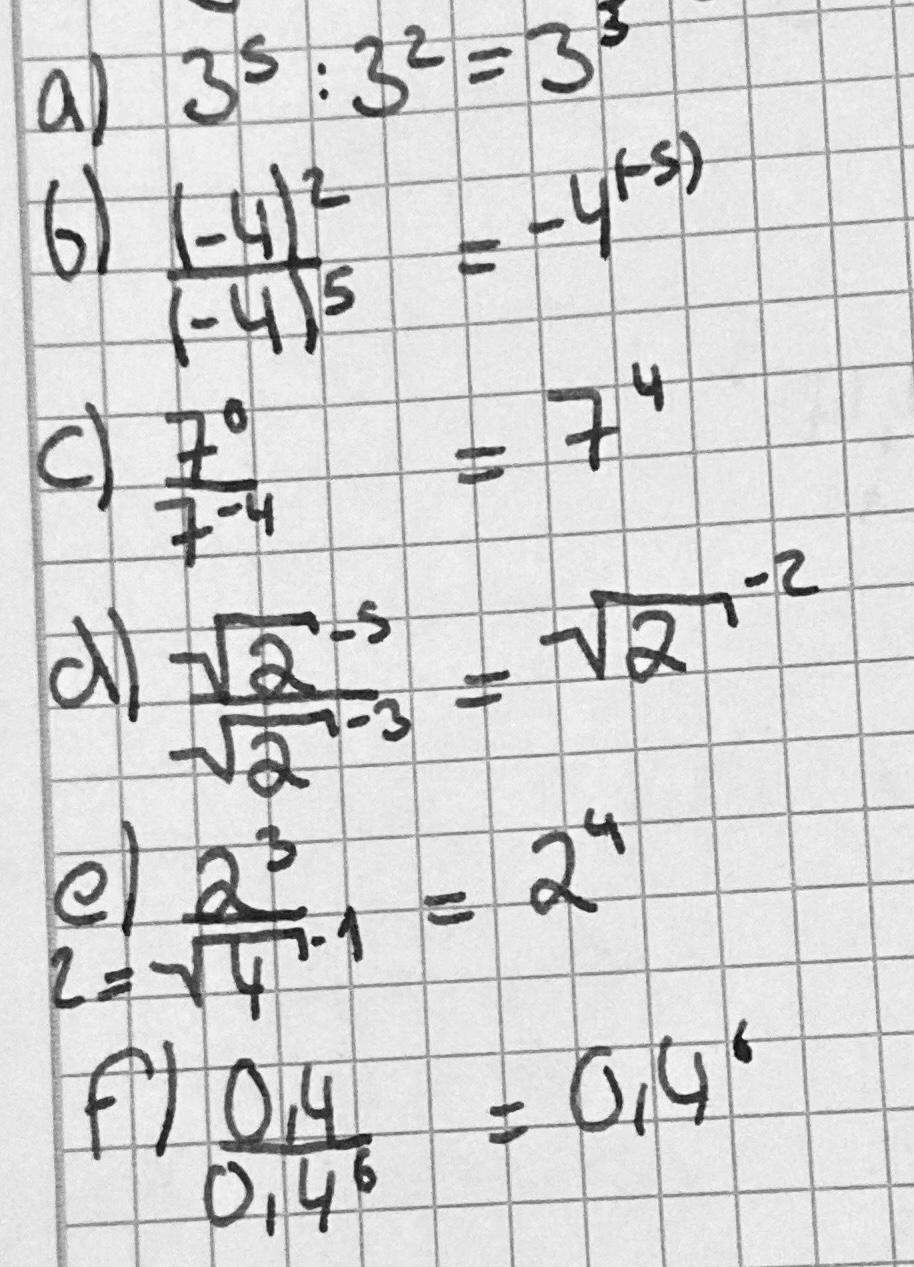 a) 3⁵ : 3² = 3³
b) (-4)² / (-4)⁵ = -4⁽⁻⁵⁾
c) 7⁰ / 7⁻⁴ = 7⁴
d) √2⁻⁵ / √2⁻³ = √2⁻²
e) 2³ / √4⁻¹ = 2⁴
2 =
f) 0,4 / 0,4⁶ = 0,4⁶